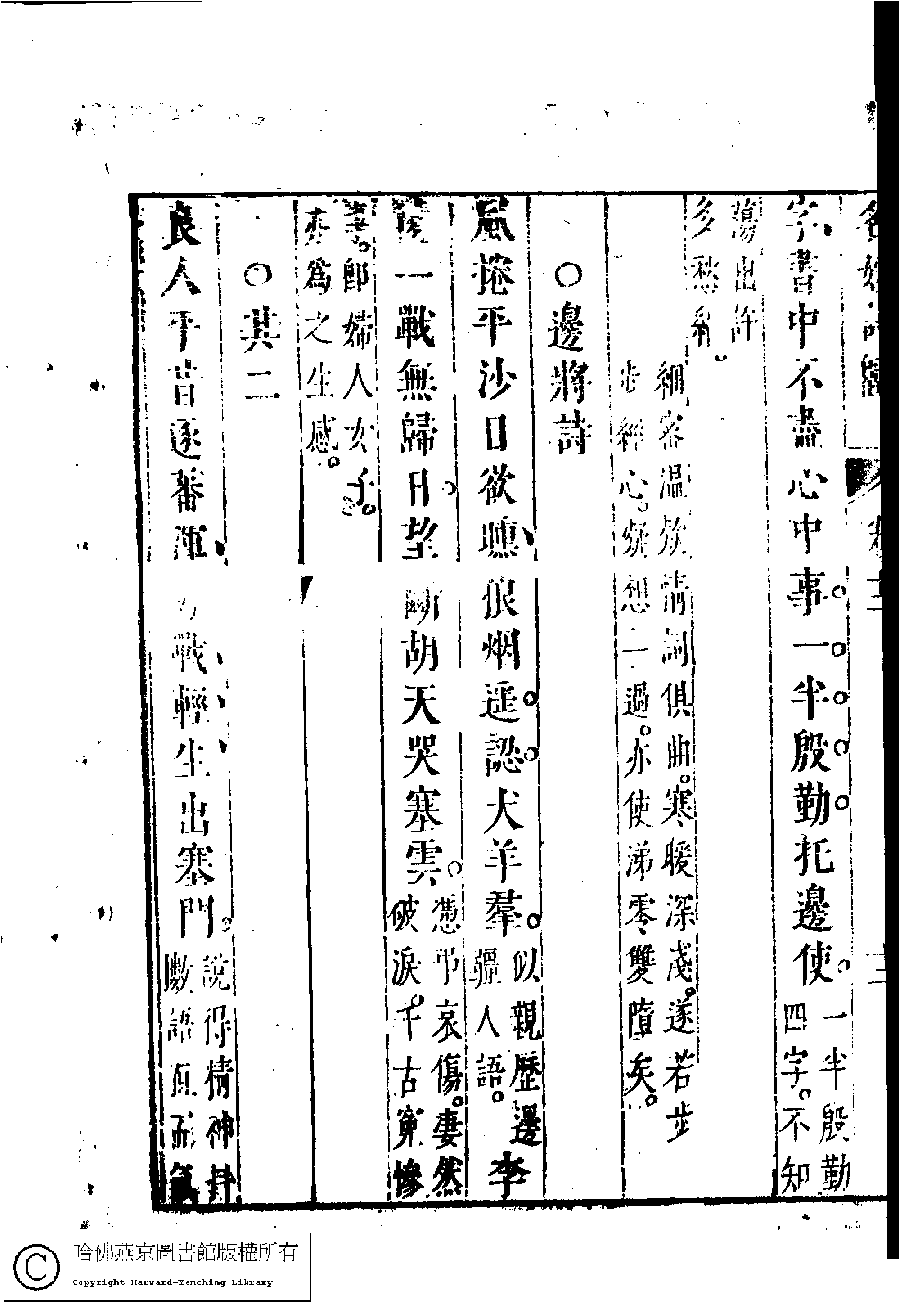 名媛詩歸 卷十
字書中不盡心中事一半殷勤托邊使。一半殷勤
四字。不知
蕩出許
多愁緒。
細密溫然清詞俱曲。寒暖深淺。遂若步
步經心。凝想一過。亦使涕零雙墮矣。
○邊將詩
風捲平沙日欲曛狼烟遥認犬羊羣。似親歷邊
疆人語。李
陵一戰無歸日望斷胡天哭塞雲。憑弔哀傷。悽然
破淚。千古寃慘
事。卽婦人女子。
亦為之生感。
○其二
良人平昔逐蕃渾力戰輕生出塞門。說得精神
數語直而氣
哈佛燕京圖書館版權所有
Copyright Harvard-Yenching Library